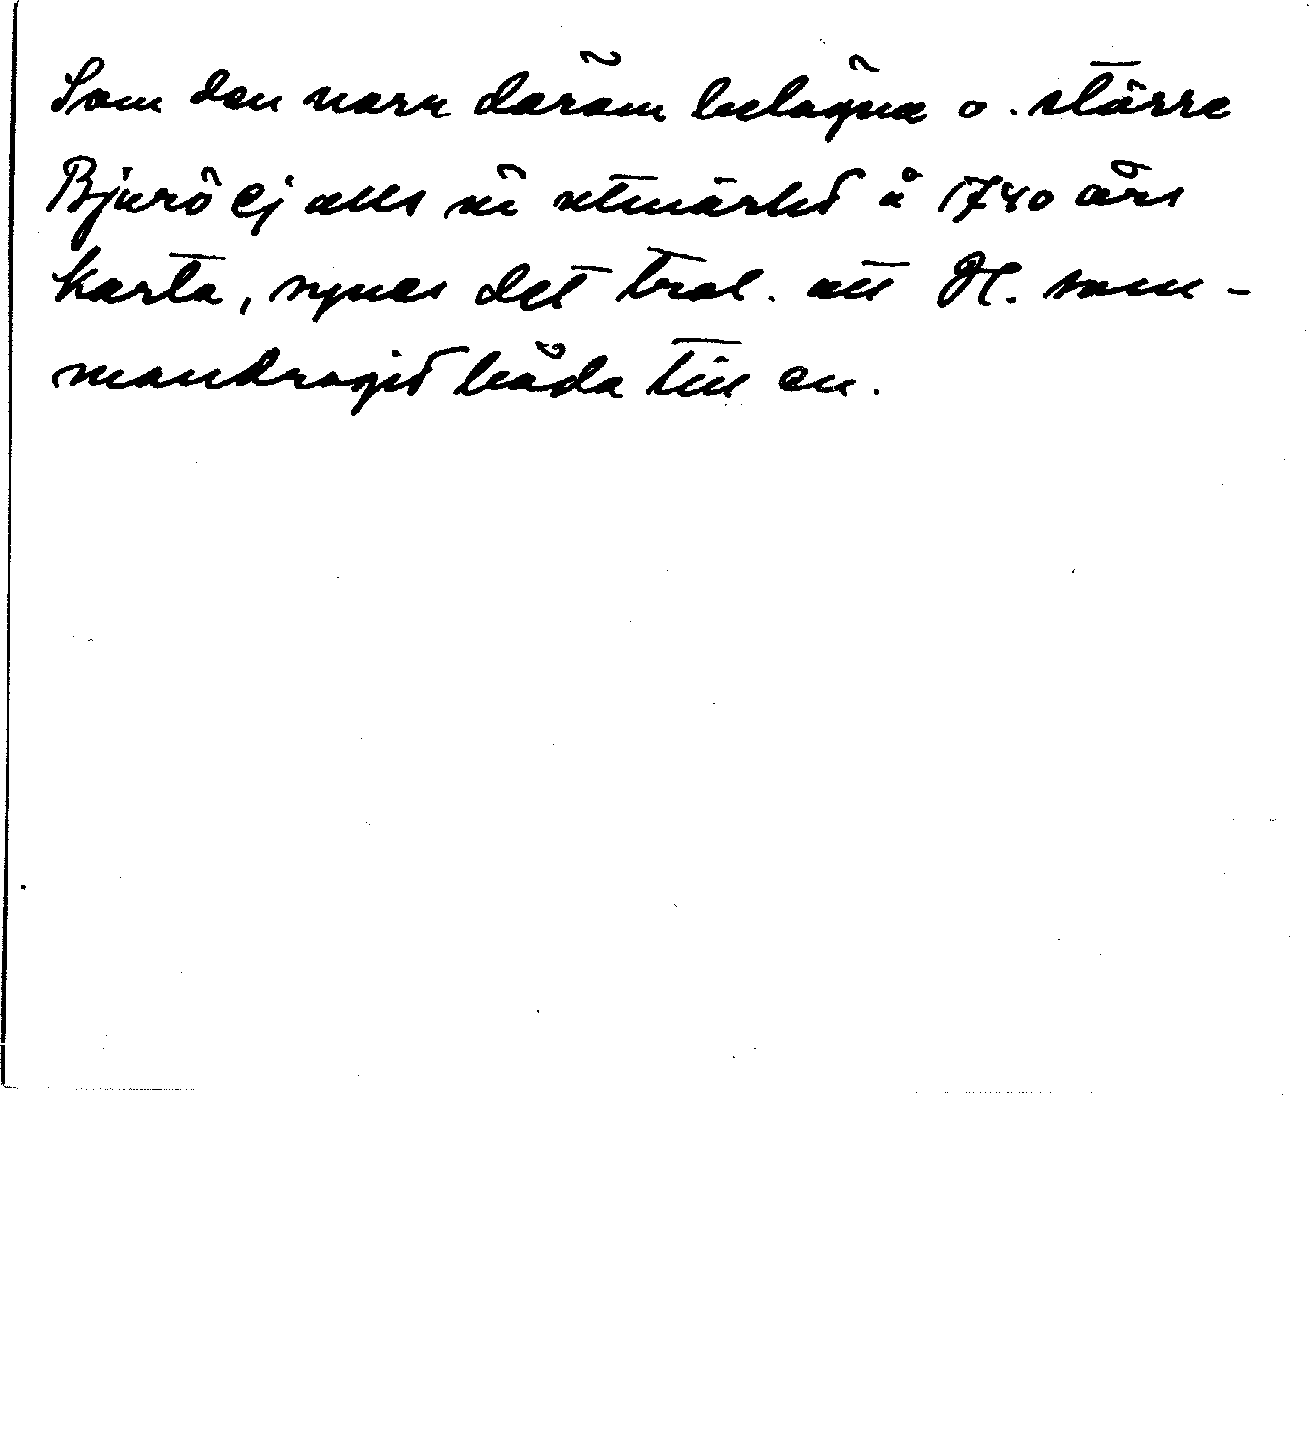 Som den norr därom belägna o. större
Bjurö ej alls är utmärkt å 1740 års
karta, synes det trol. att H. sam-
mandragit båda till en.